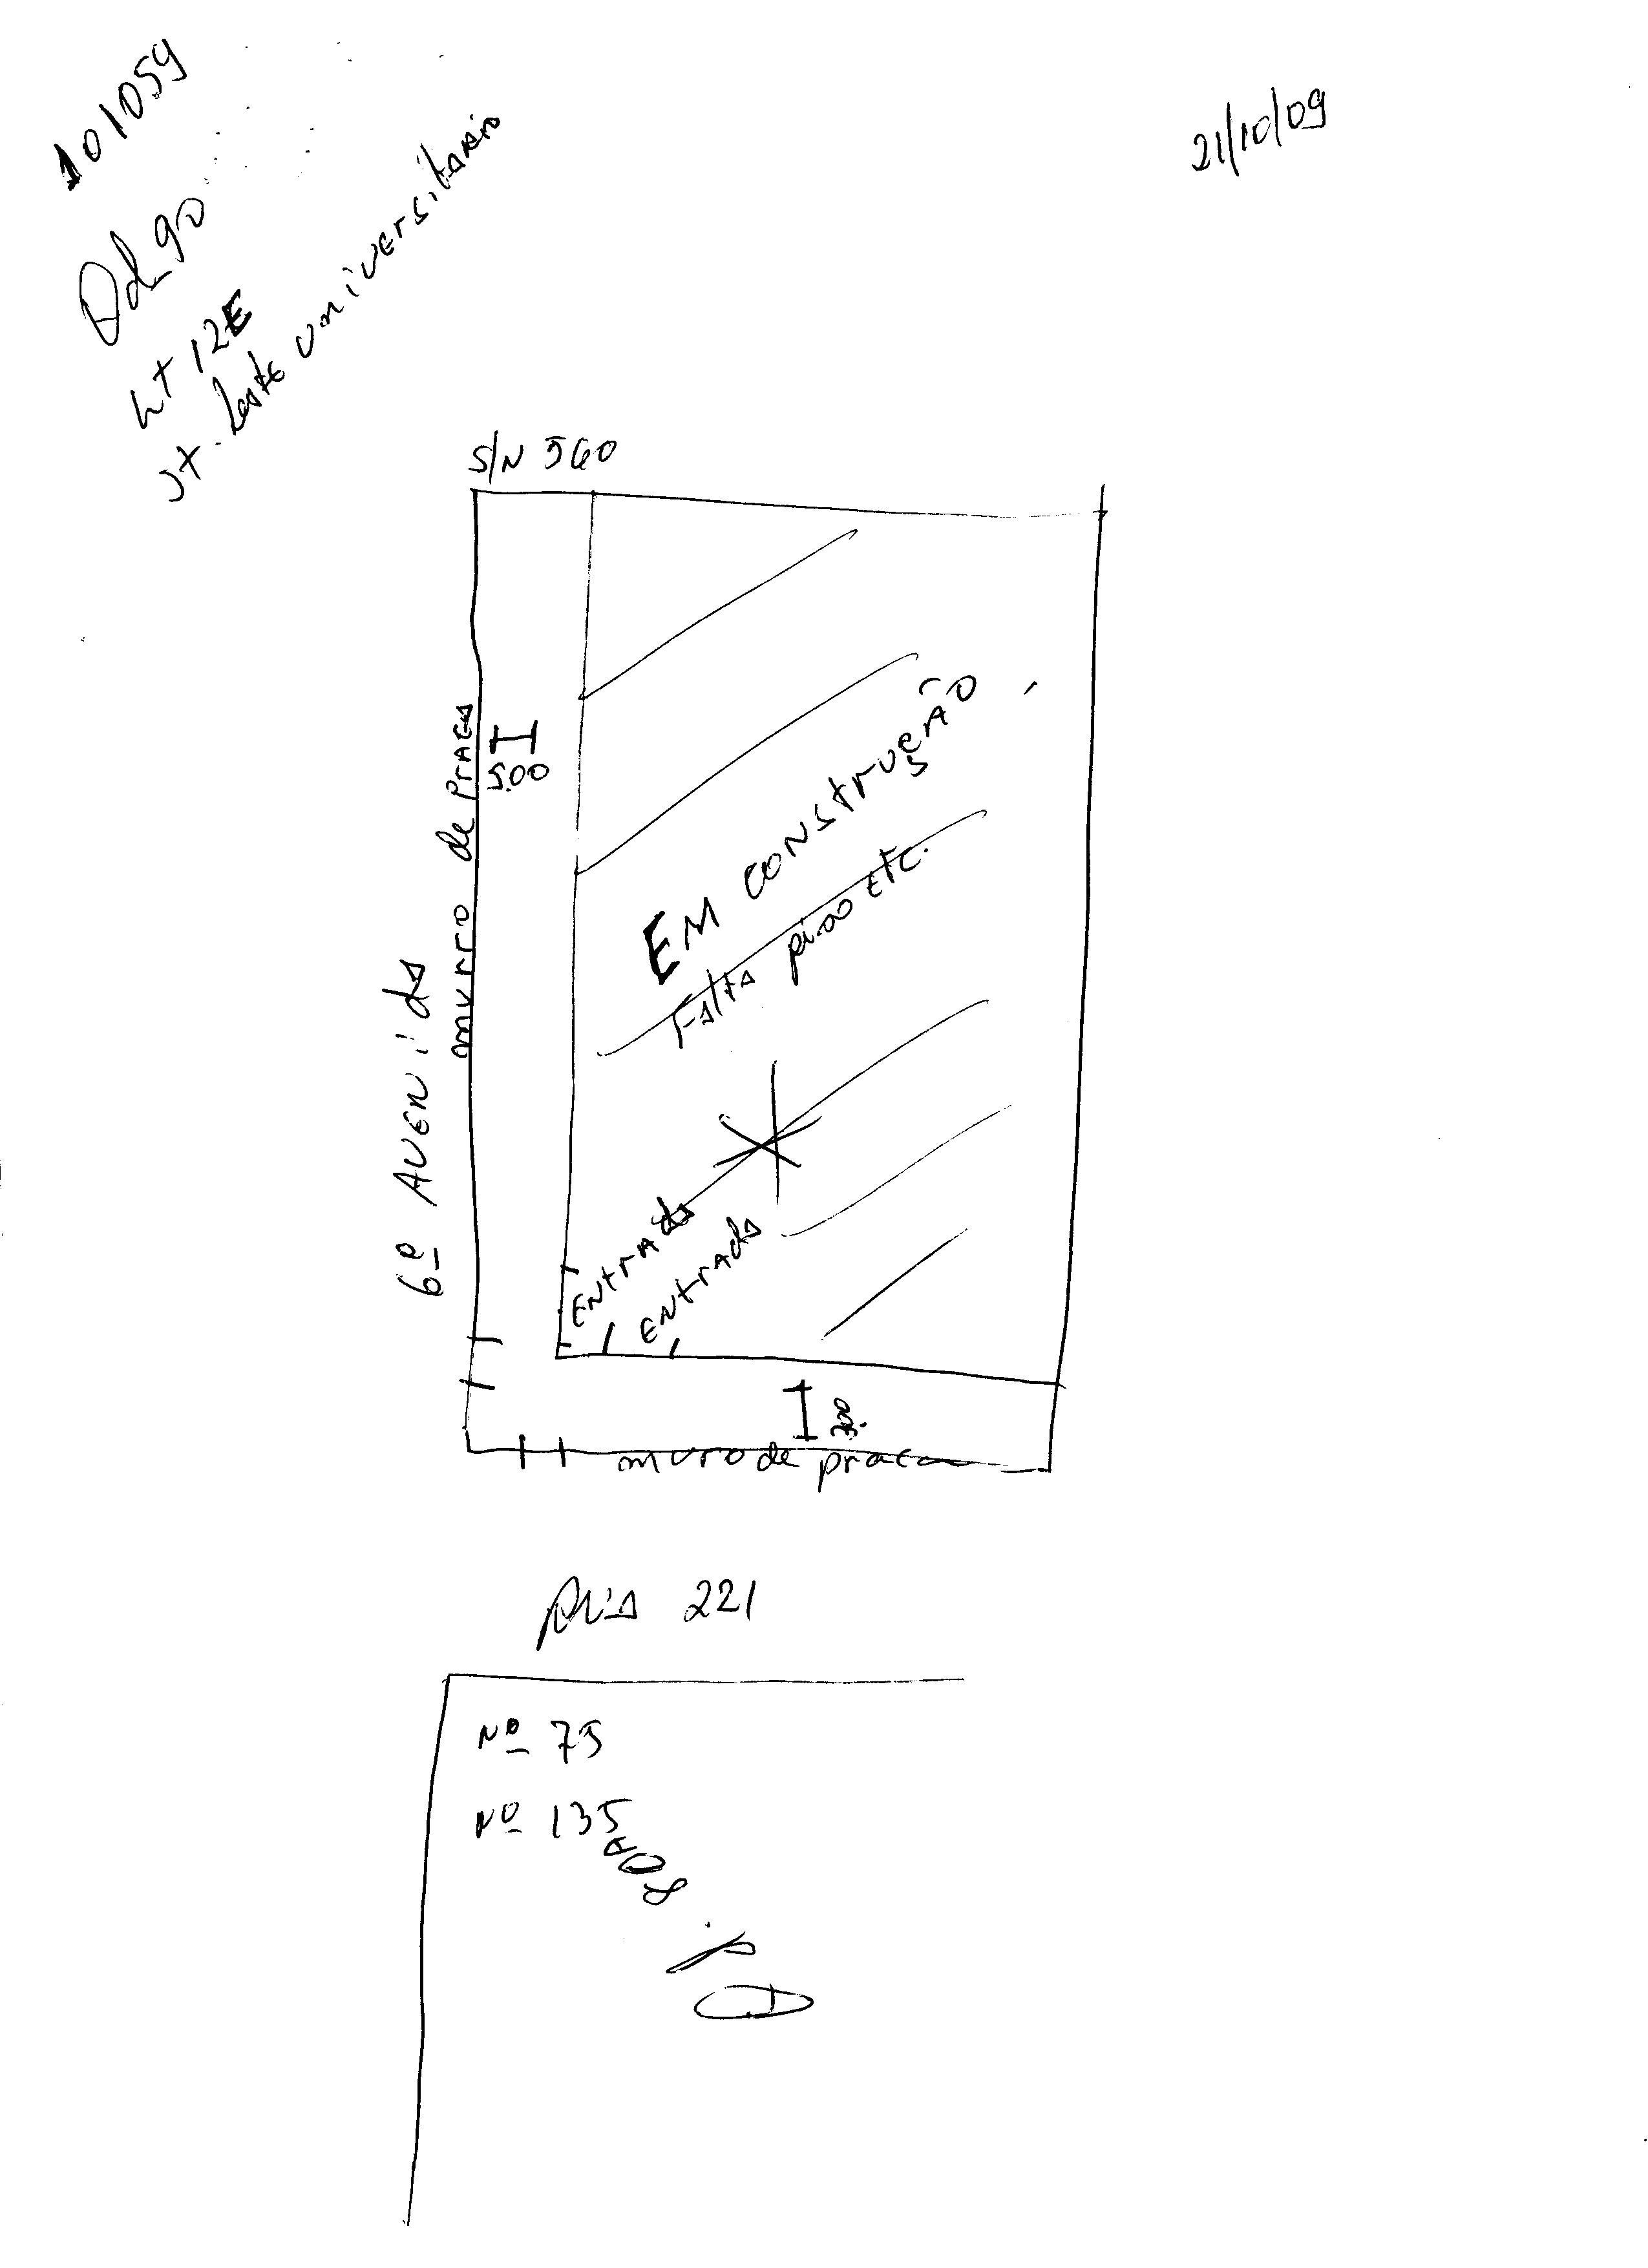 101059
Qd 90
Lt 12E
St. Leste universitario
21/10/09
S/N 560
muro de PLACA
5.00
6ª AVENida
EM CONStruçÃO
Falta piso ETC.
ENtrAda
ENtrAda
3.00
muro de placa
Rua 221
Nº 75
Nº 135